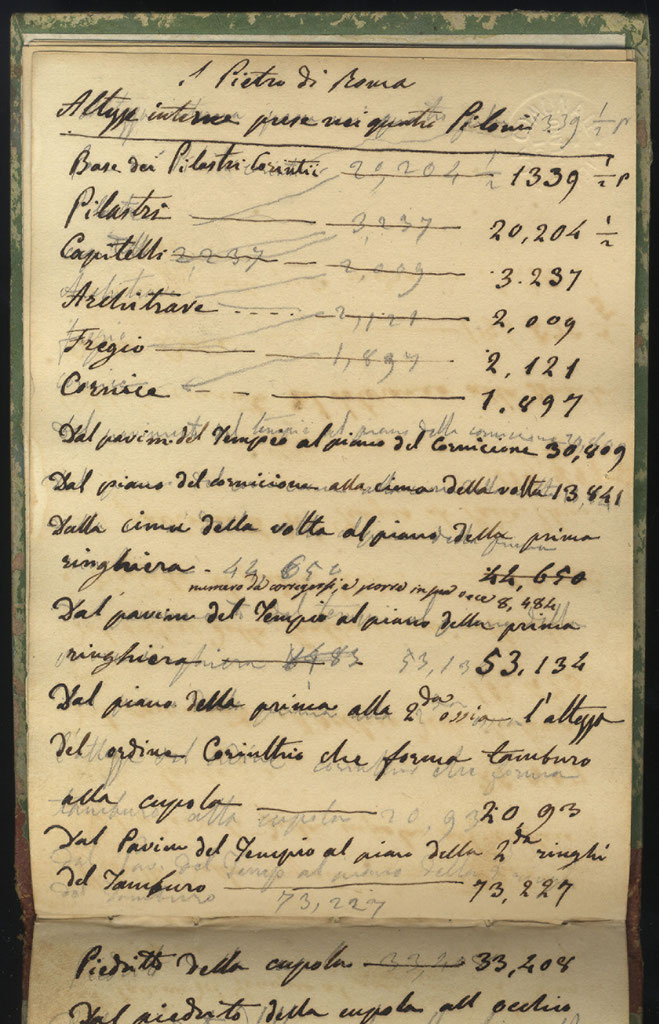 S Pietro di Roma
Altezze interne prese nei quatri Piloni 1339 1/2 P
Base dei Pilastri Corintii 20,204 1/2 1339 1/2 P
Pilastri 3,237 20,204 1/2
Capitelli 2237 2,009 3.237
Architrave 2,121 2,009
Fregio 1,897 2,121
Cornice 1.897
Dal pavim. del Tempio al piano del Cornicione 30,809
Dal piano del cornicione alla cima della volta 13,841
Dalla cima della volta al piano della prima
ringhiera - 44 650 44,650
numero da correggersi, e porre in sua vece 8,484
Dal pavim del Tempio al piano della prima
ringhiera 8483 53,13 53,134
Dal piano della prima alla 2da ossia l'altezza
del ordine Corinthio che forma tamburo
alla cupola 20,93 20,93
Dal Pavim del Tempio al piano della 2da ringhi
del Tamburo 73,227
73,227
Piedritto della cupola 33,208 33,208
Dal piedrito della cupola all occhio